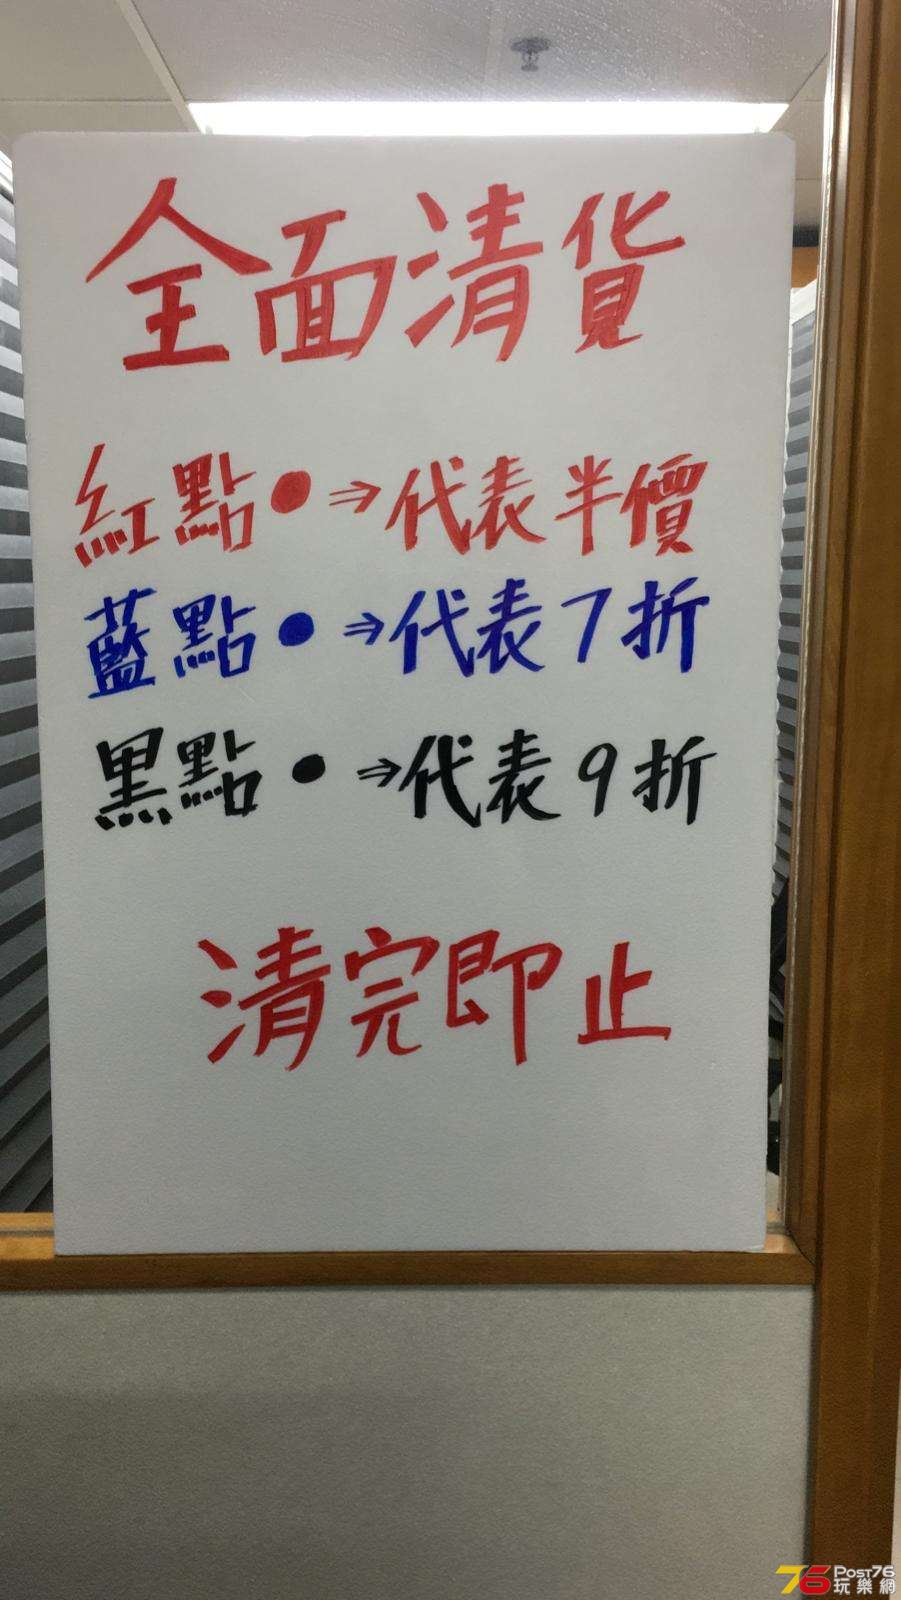 全面清貨
紅點●⇒代表半價
藍點●⇒代表7折
黑點●⇒代表9折
清完即止
76 Post76
玩樂網